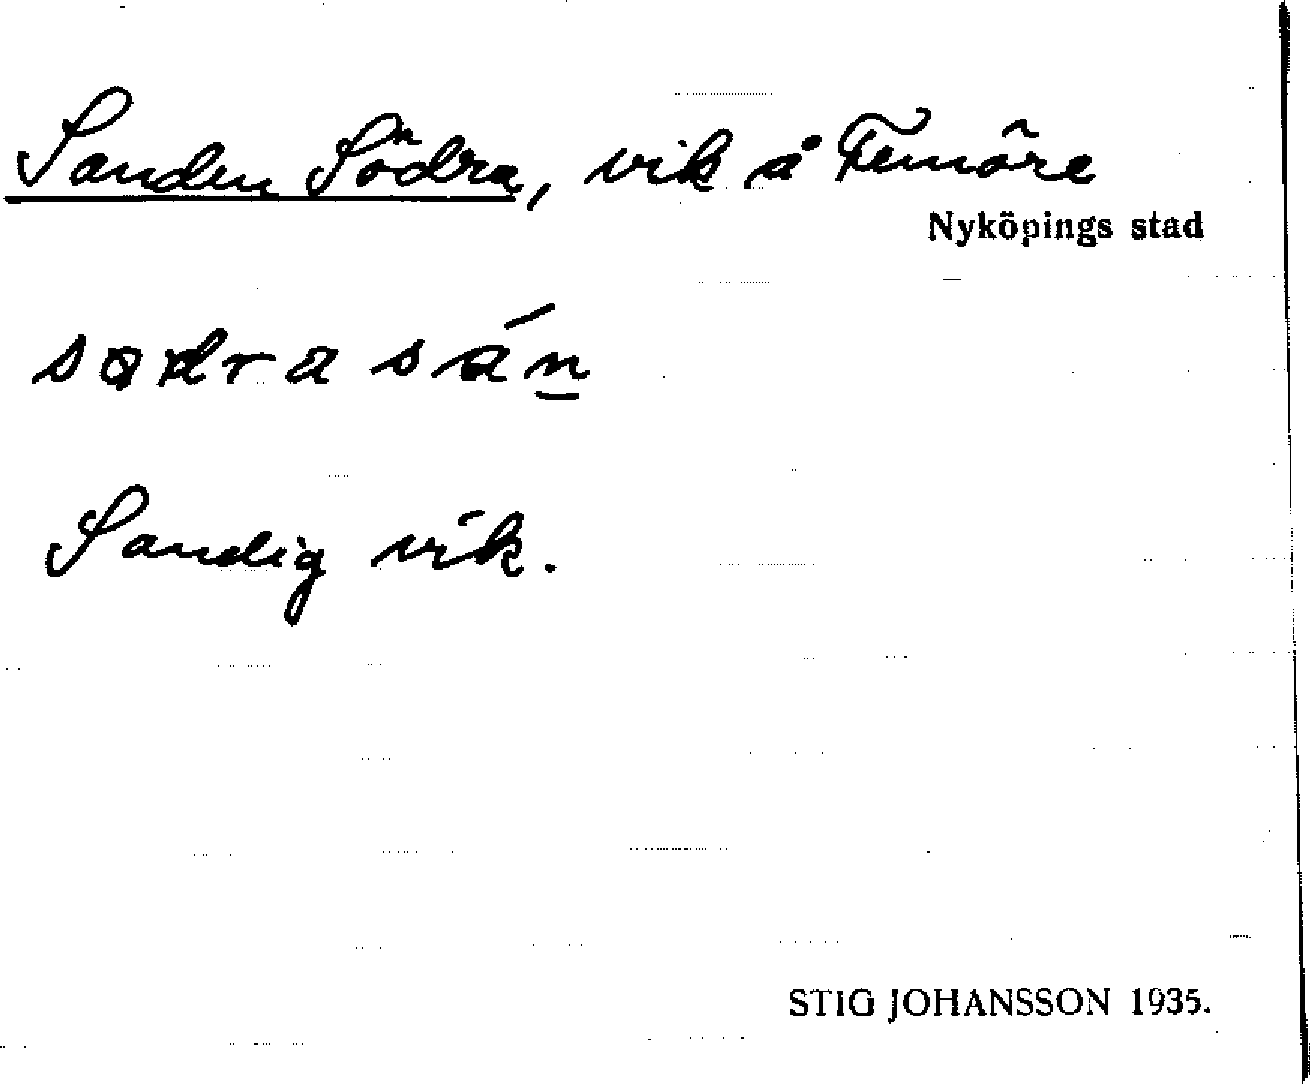 Sanden Södra, vik å Femöre
Nyköpings stad
sɑdra sán̲
Sandig vik.
STIG JOHANSSON 1935.